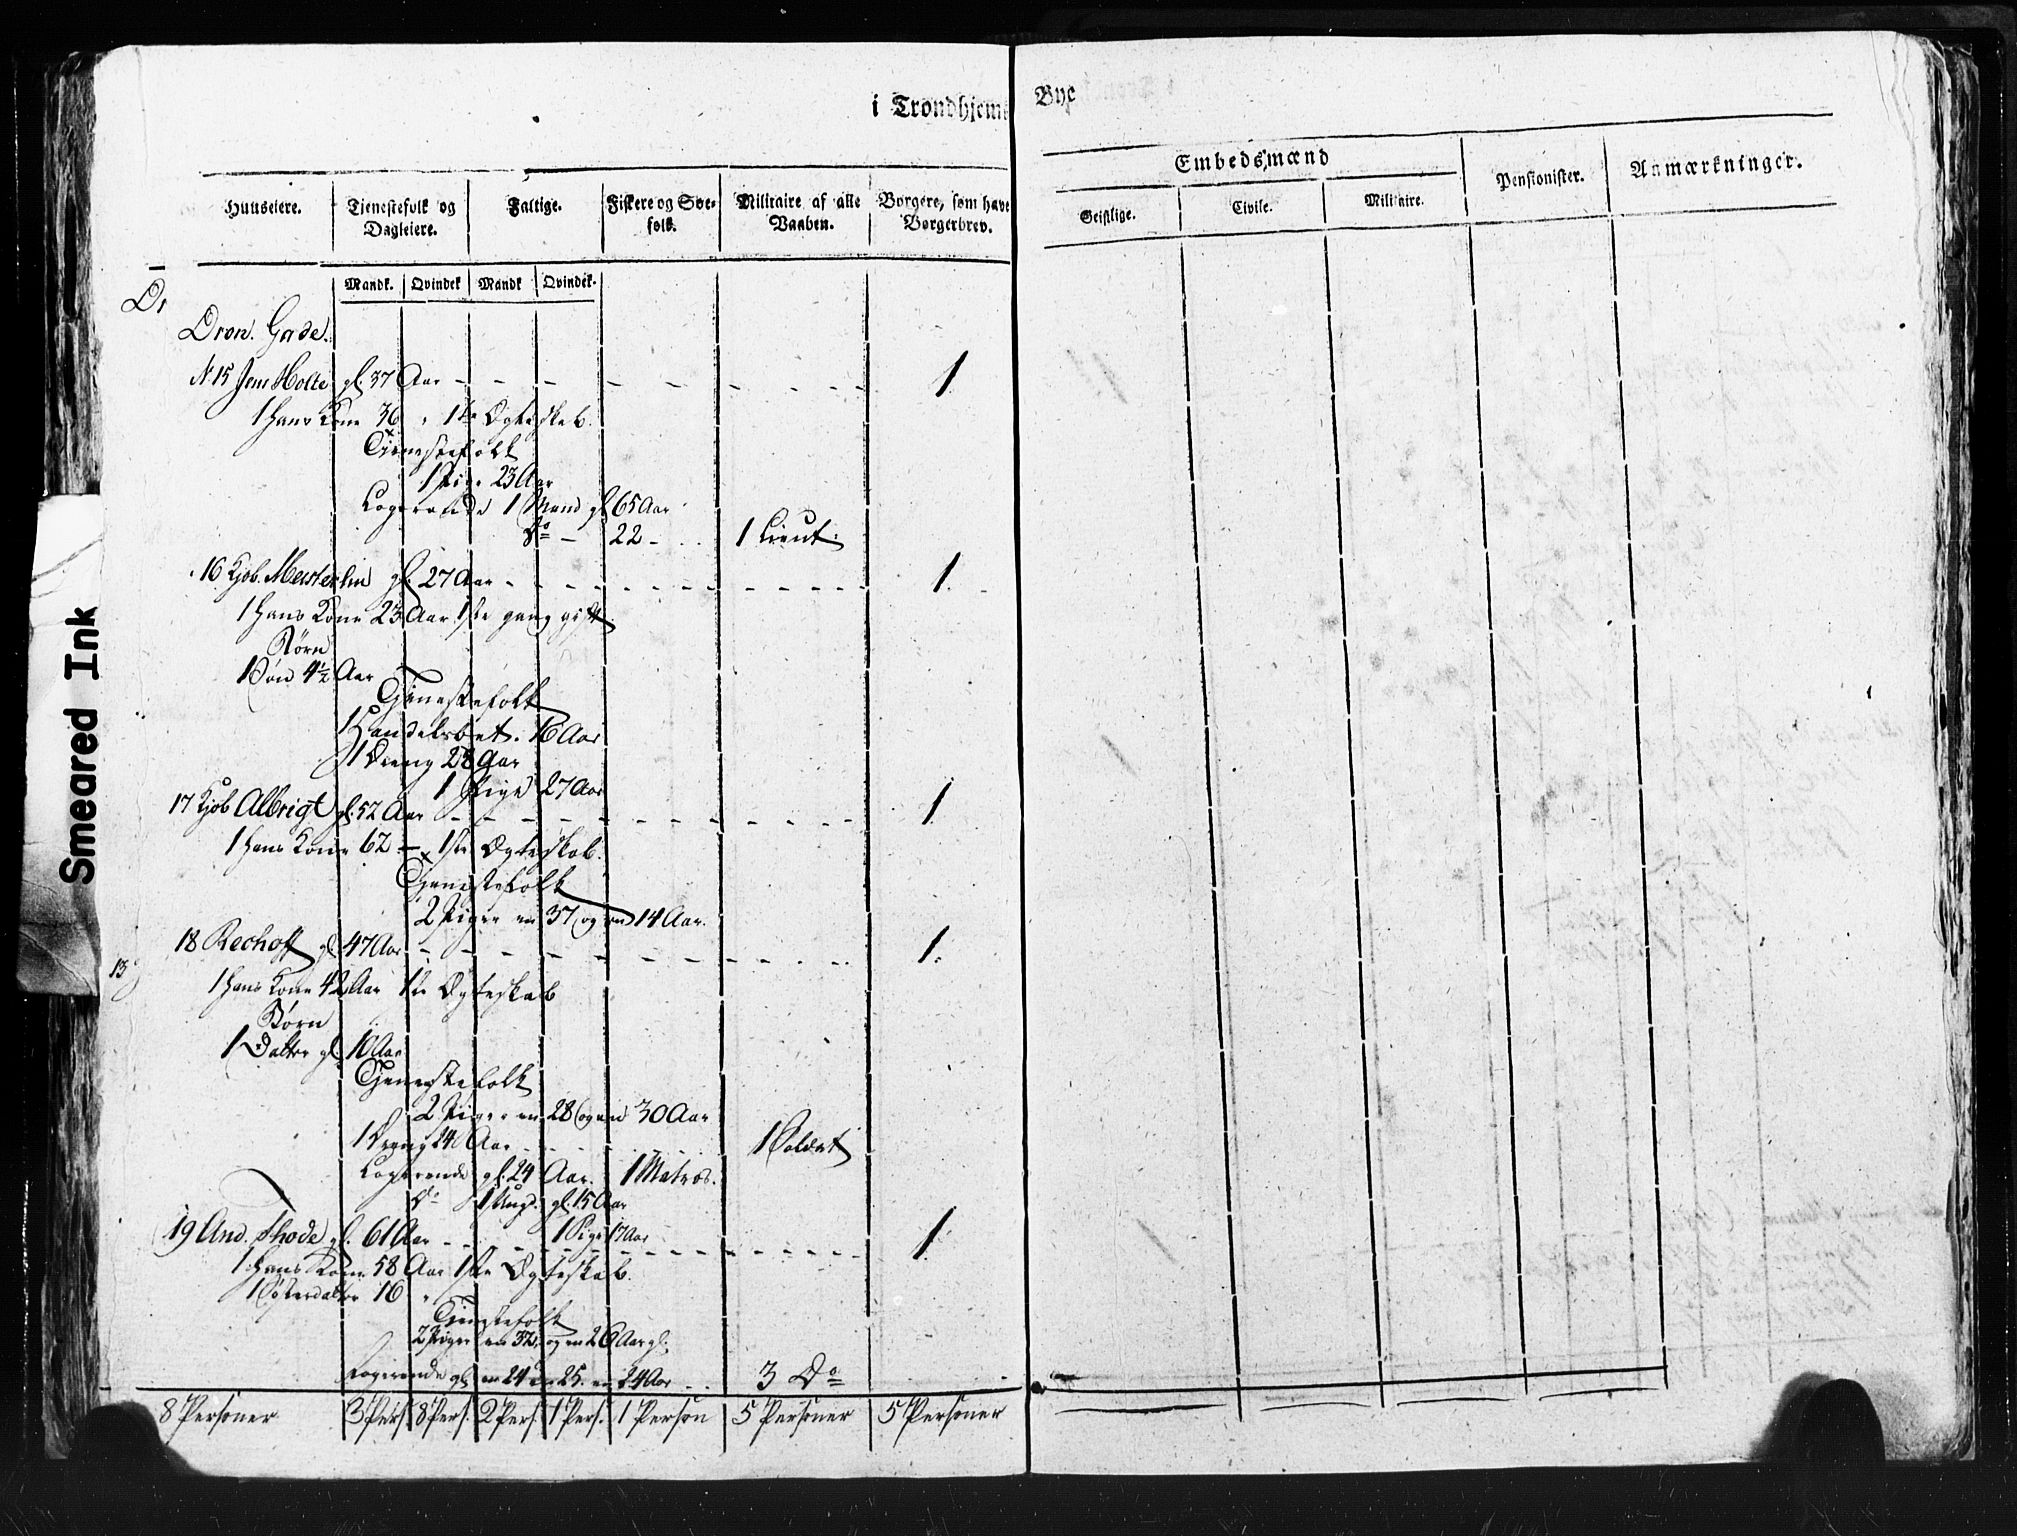 i Trondhjems Bye
Huuseiere. Tjenestefolk og Dagleiere. Faltige. Fiskere og Søefolk. Militaire af alle Vaaben. Borgere, som have Borgerbrev. Embedsmænd Pensionister. Anmærkninger.
Geistlige. Civile. Militaire.
Mandk. Qvindek Mandk Qvindek.
Dron. Gade.
N. 15 Jens Holte gl. 37 Aar - - - - - - 1
1 hans Kone 36 " 1te Ægteskab.
Tjenestefolk
1 Pige 23 Aar
Logerende 1 Mand gl 65 Aar
Do - 22 - 1 Lieut.
16 Kjøb. gl. 27 Aar - - - - - - 1.
1 hans Kone 23 Aar 1ste gang gift
Børn
1 Søn 4½ Aar
Tjenestefolk
1 Handelsbet. 16 Aar
1 Dreng 28 Aar
1 Pige 27 Aar
17 Kjøb Albrigt gl. 52 Aar - - - - - - 1.
1 hans Kone 62 - 1ste Ægteskab.
Tjenestefolk
2 Piger en 37 og en 14 Aar.
18 Rechoff gl. 47 Aar - - - - - - 1.
13
1 hans Kone 42 Aar 1te Ægteskab
Børn
1 Datter gl. 10 Aar
Tjenestefolk
2 Piger en 28 og en 30 Aar
1 Dreng 24 Aar - - - - 1 Soldat
Logerende gl. 24 Aar. 1 Matros.
Do 1 Ungd. gl. 15 Aar
1 Pige 17 Aar
19 And. Rhode gl. 61 Aar - - - - - - 1
1 Hans Kone 58 Aar 1ste Ægteskab.
1 Søsterdatter 16 "
Tjenestefolk
2 Piger en 32, og en 26 Aar gl.
Logerende gl. en 24 en 25. en 24 Aar - - 3 Do
8 Personer 3 Pers. 8 Pers. 2 Pers. 1 Pers. 1 Person 5 Personer 5 Personer
Smeared Ink